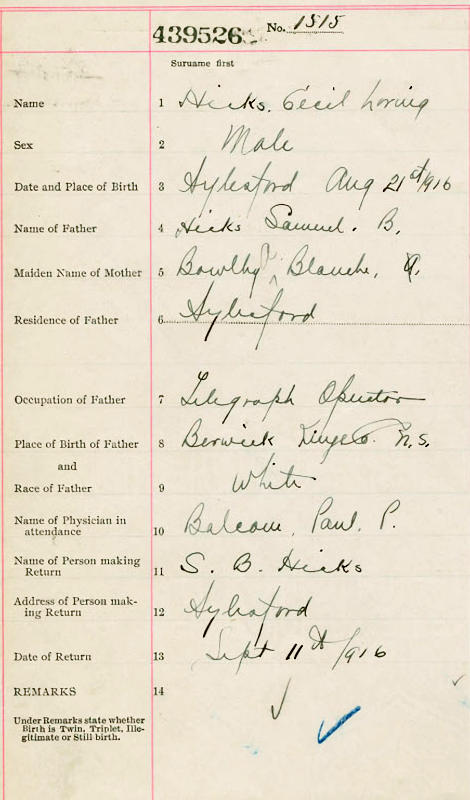 439526 No. 1515
Surname first
Name 1 Hicks. Cecil Loring
Sex 2 Male
Date and Place of Birth 3 Aylesford Aug 21st 1916
Name of Father 4 Hicks Samuel. B.
Maiden Name of Mother 5 Bowlby, Blanche,
Residence of Father 6 Aylesford
Occupation of Father 7 Telegraph Operator
Place of Birth of Father 8 Berwick Kings Co. N.S.
and
Race of Father 9 White
Name of Physician in
attendance 10 Balcom, Paul. P.
Name of Person making
Return 11 S. B. Hicks
Address of Person mak-
ing Return 12 Aylesford
Date of Return 13 Sept 11th 1916
REMARKS 14
Under Remarks state whether
Birth is Twin, Triplet, Ille-
gitimate or Still-birth.